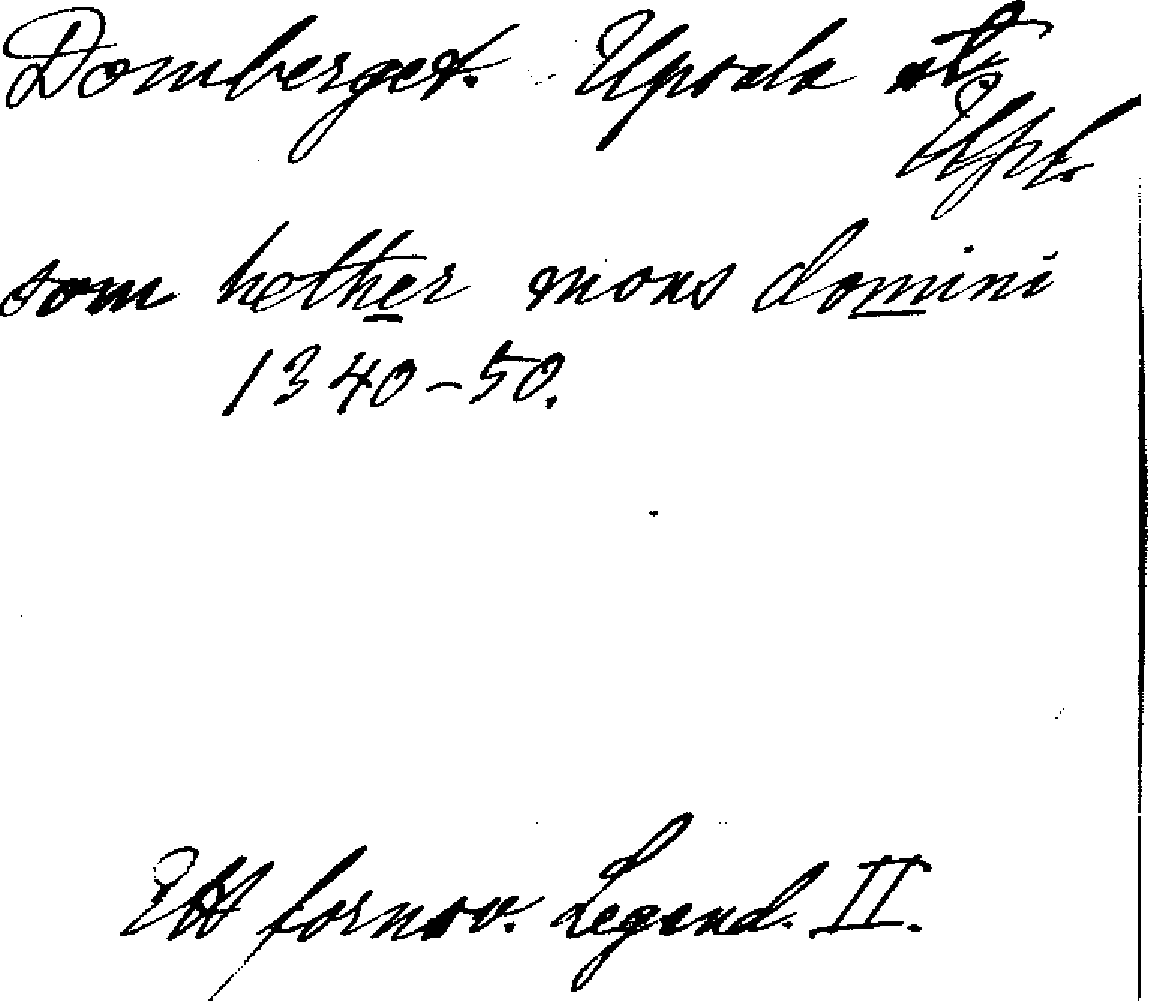 Domberget. Upsala st,
Upl.
som hether mons domini
1340-50.
Ett fornsv. Legend. II.